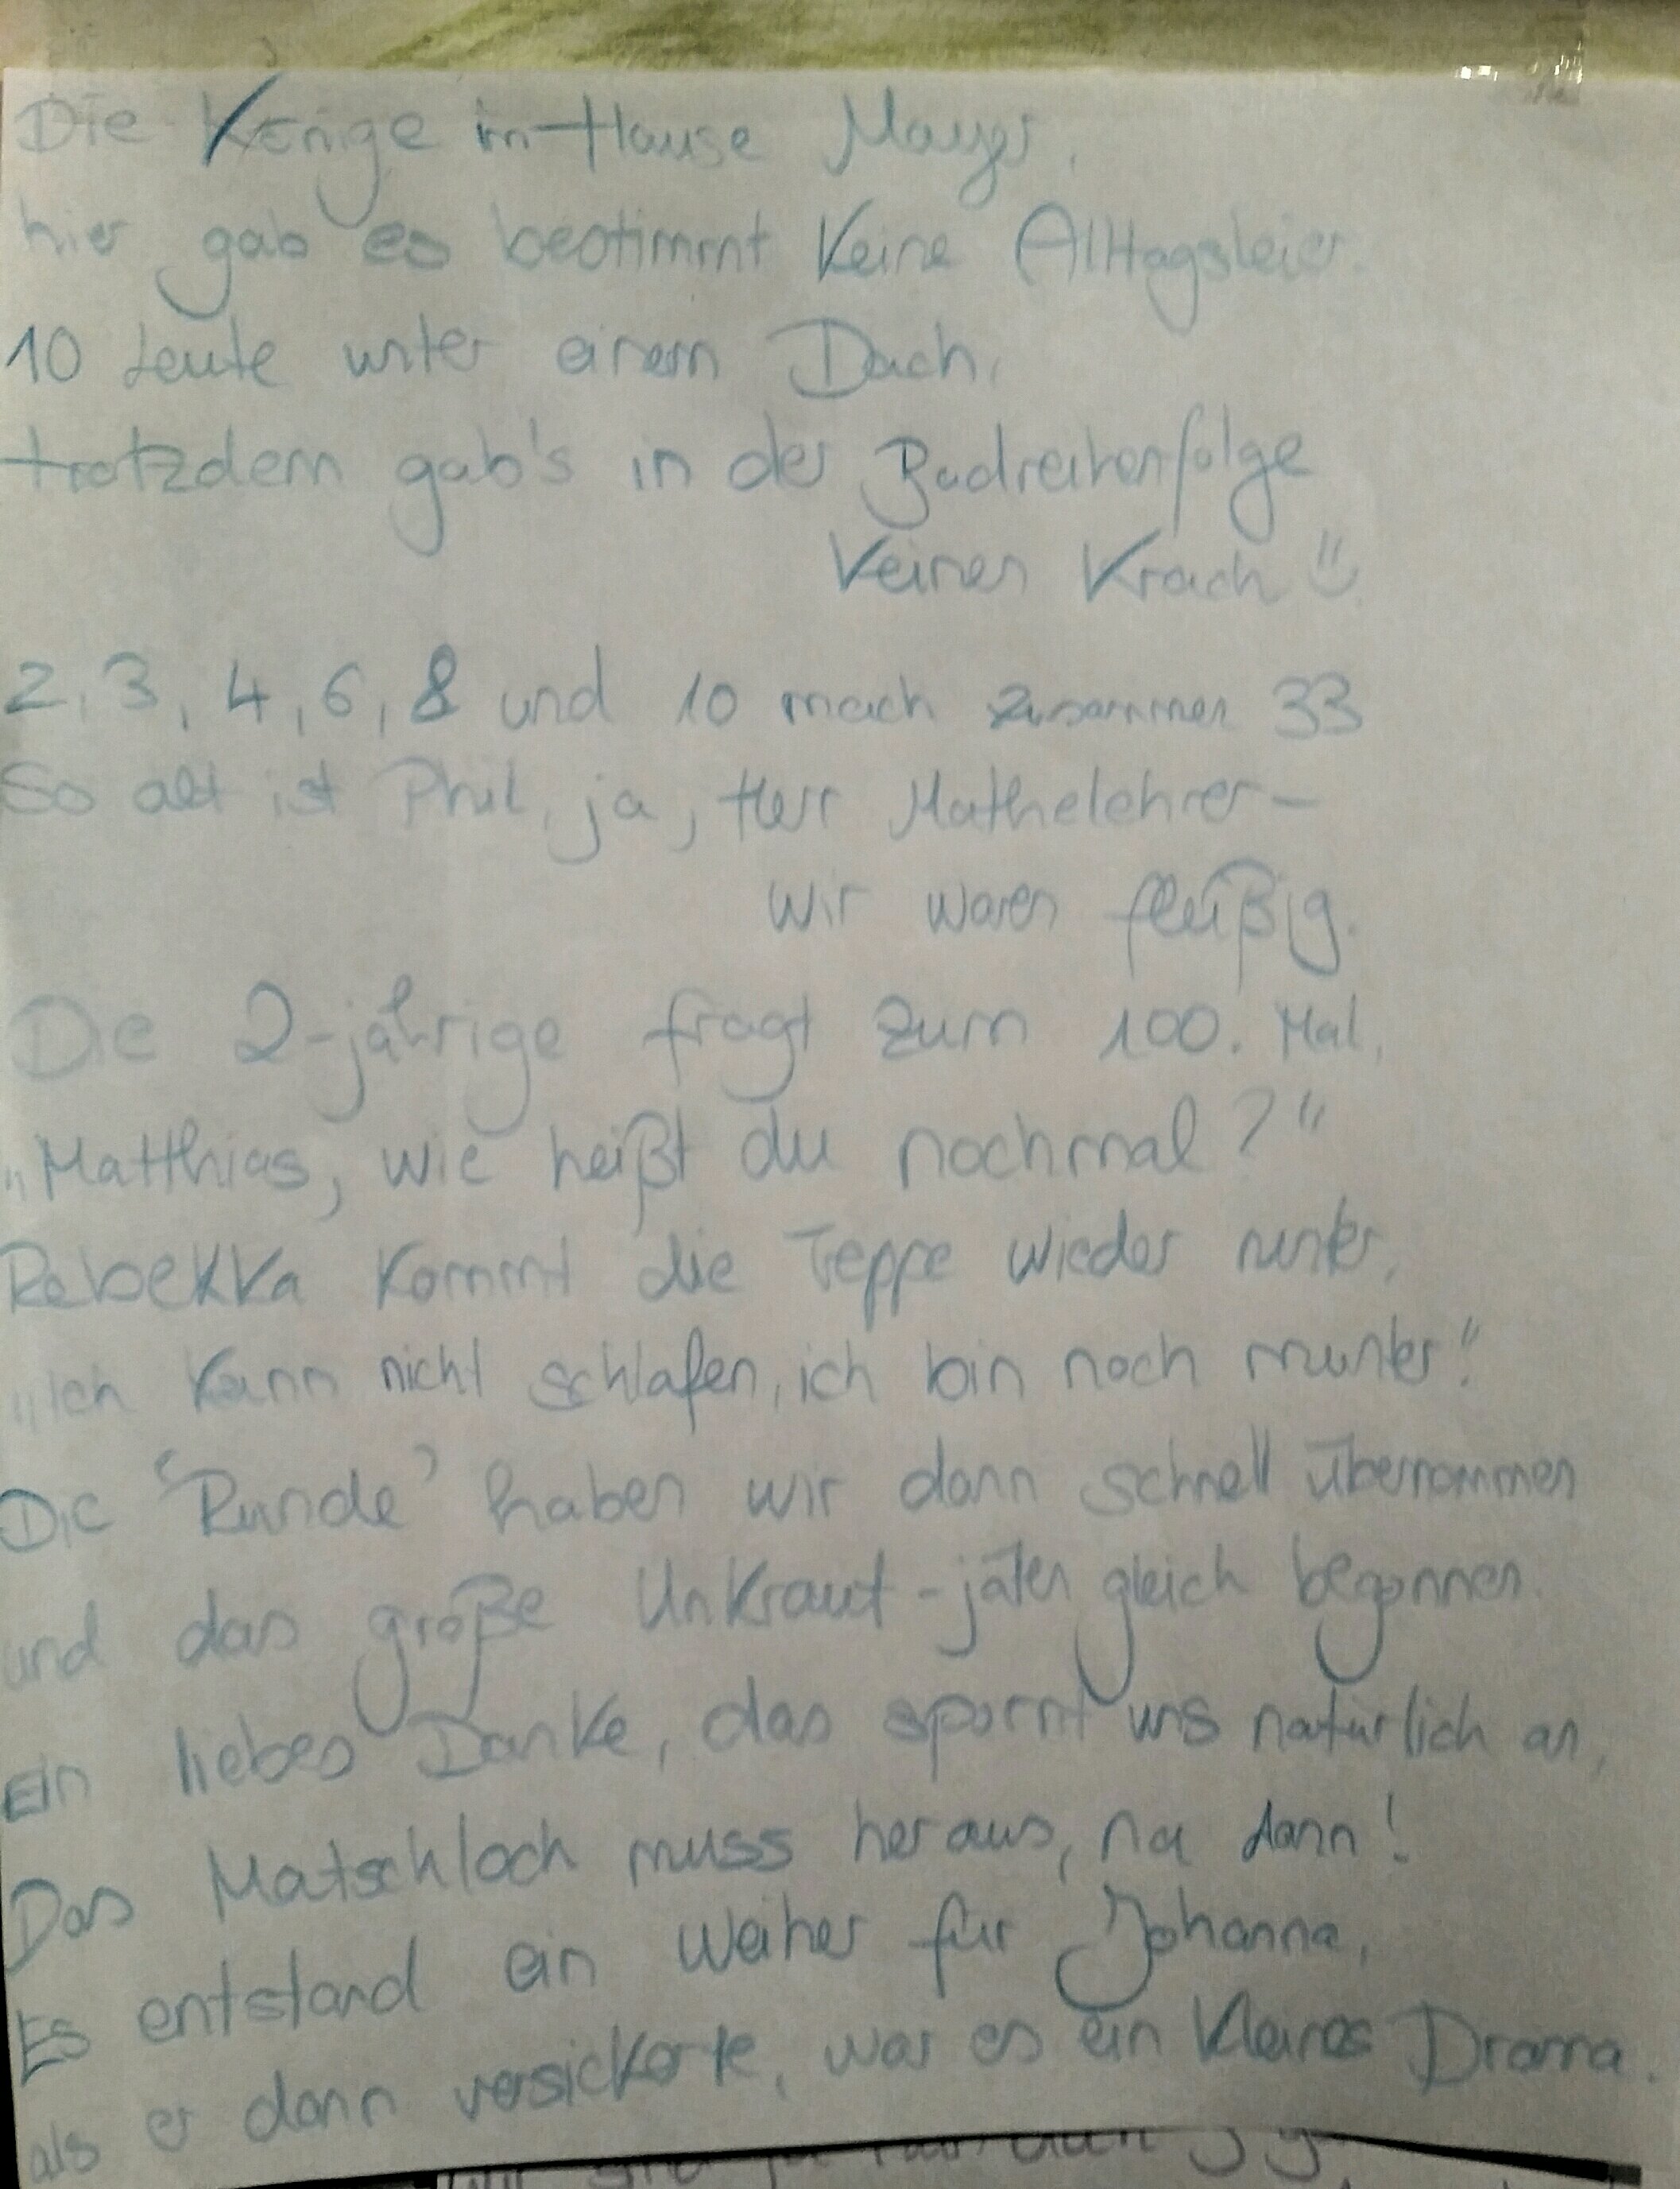 Die Kenige im Hause Mayer,
hier gab es bestimmt keine Alltagsleier.
10 Leute unter einem Dach,
trotzdem gab's in der Badreihenfolge
keinen Krach
2, 3, 4, 6, 8 und 10 mach zusammen 33
So alt ist Phil, ja, Herr Mathelehrer-
wir waren fleißig.
Die 2-jährige fragt zum 100. Mal,
"Matthias, wie heißt du nochmal?"
Rebekka kommt die Teppe wieder runter,
"Ich kann nicht schlafen, ich bin noch munter!"
Die 'Runde' haben wir dann schnell übernommen
und das große Unkraut-jäten gleich begonnen.
Ein liebes Danke, das spornt uns natürlich an,
Das Matschloch muss heraus, na dann!
Es entstand ein Weiher für Johanna,
als er dann versickerte, war es ein kleines Drama.